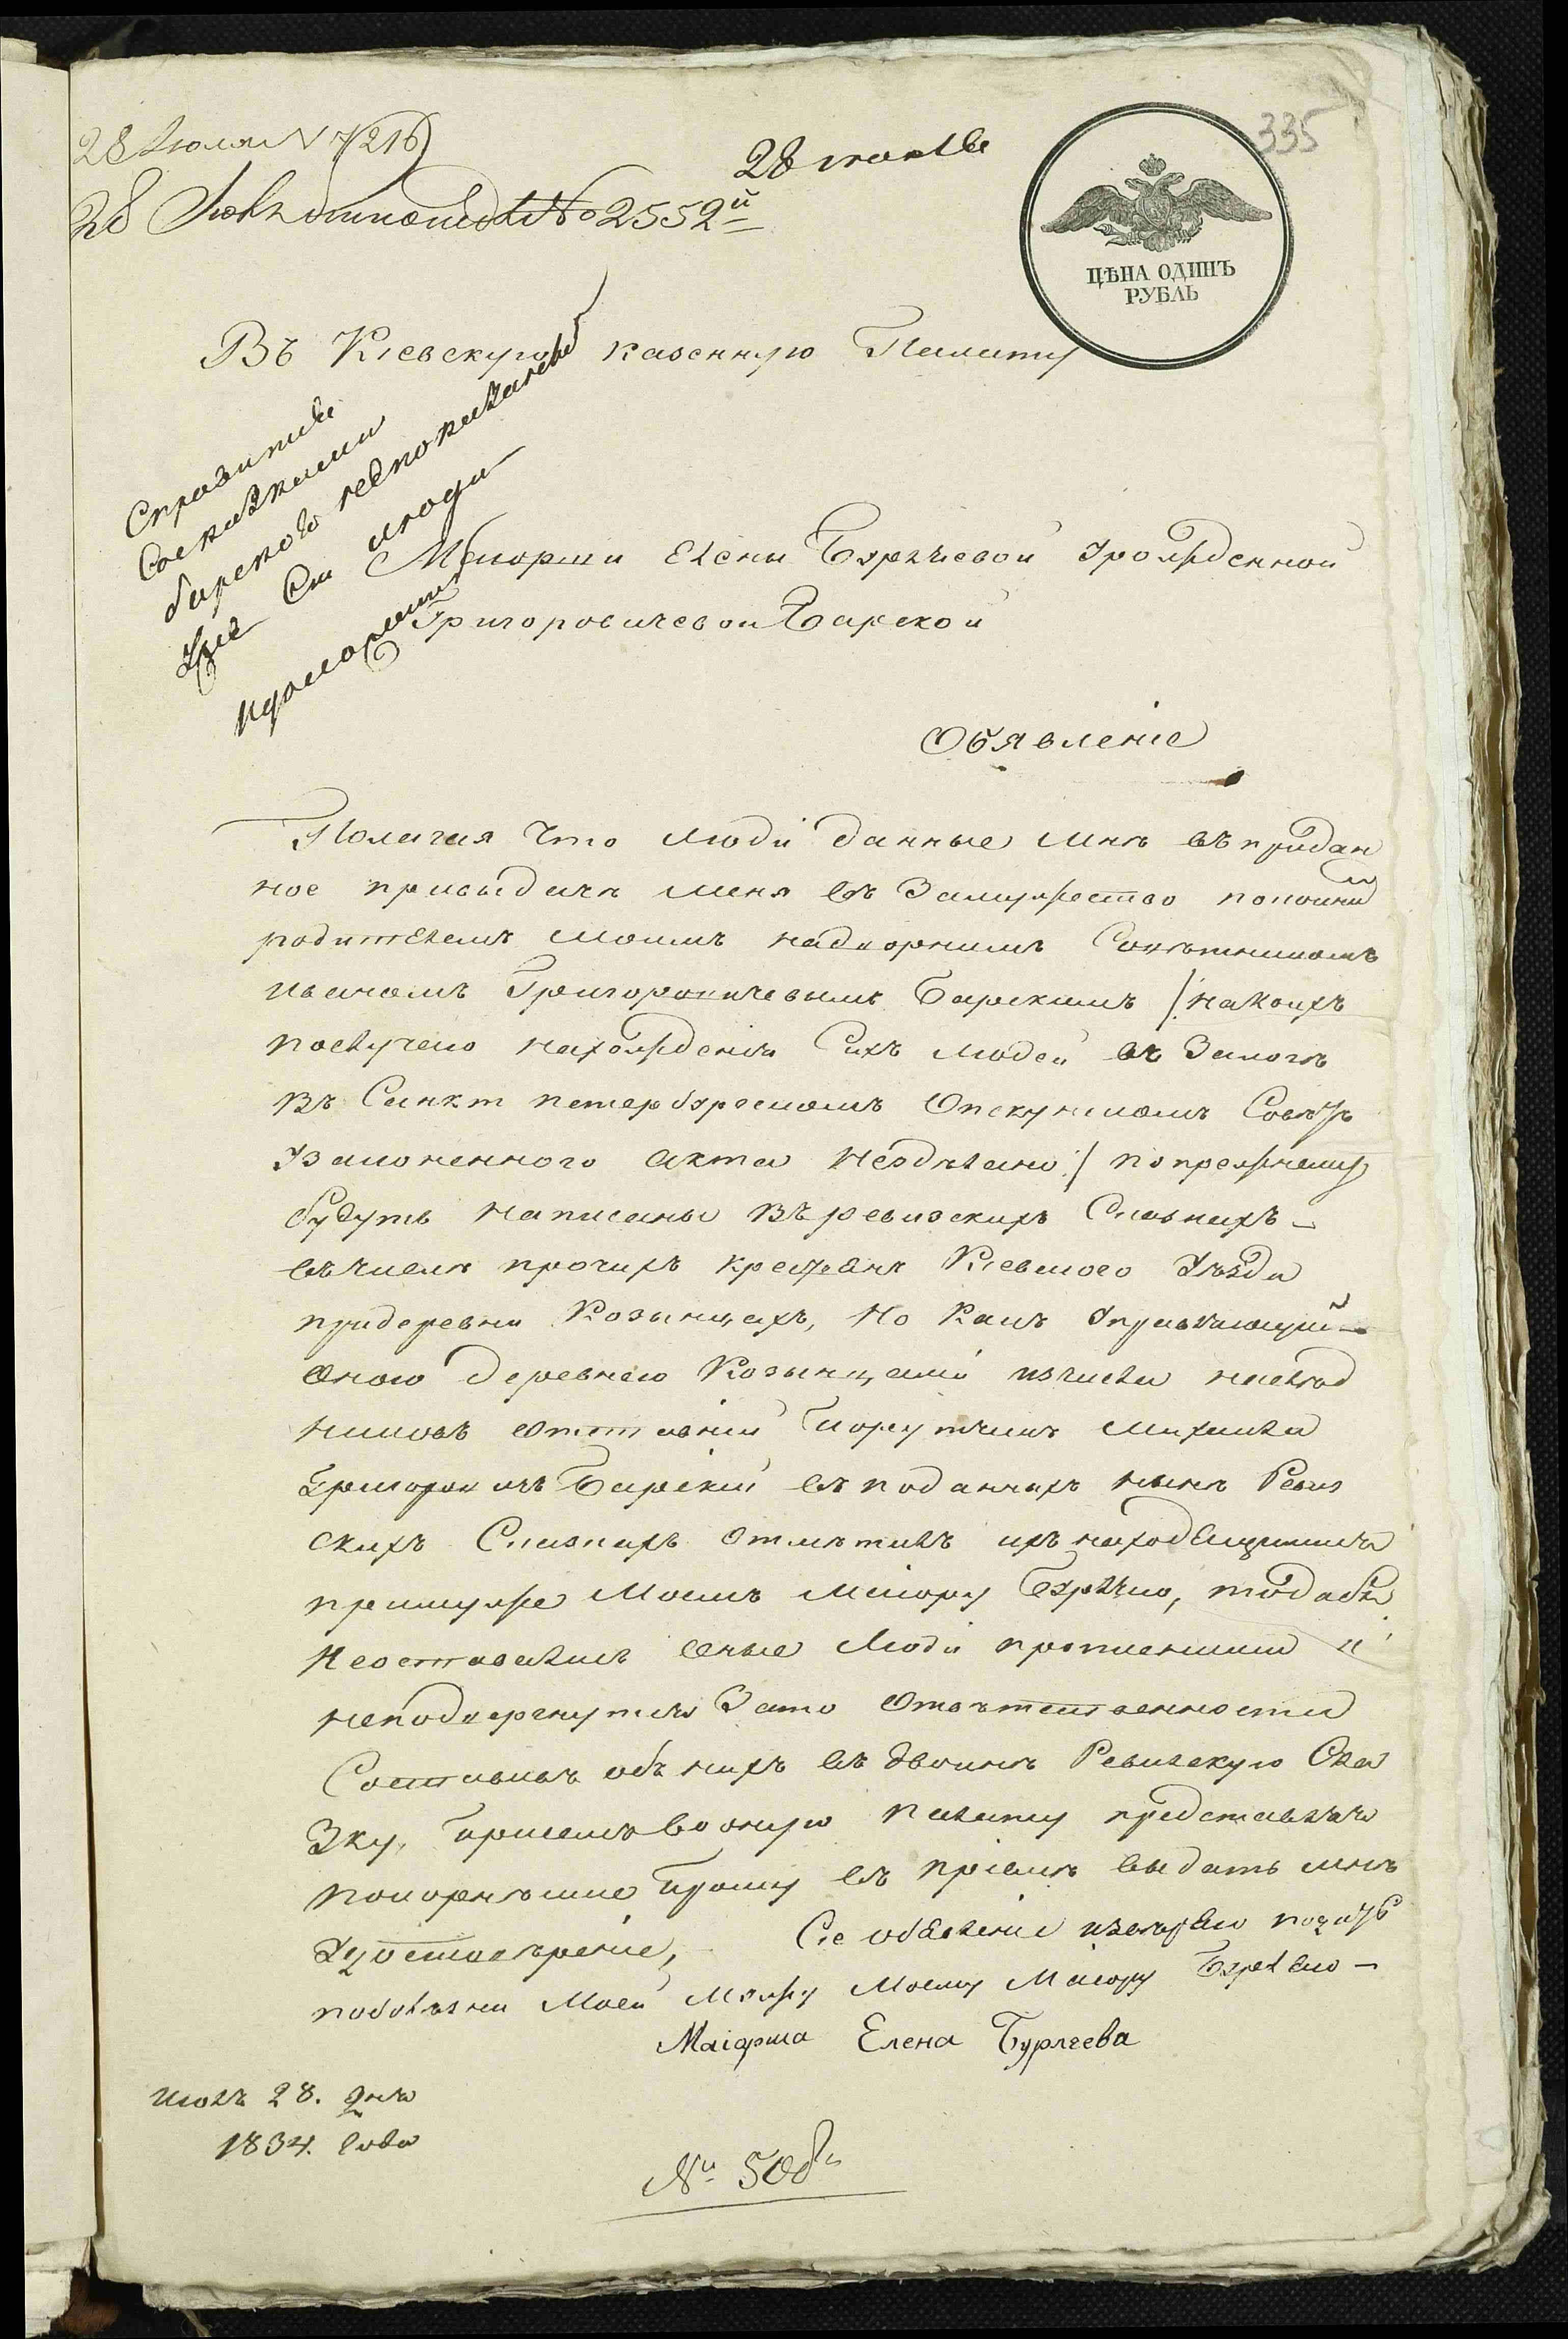 335
28 Июля N 7216
28 июля
28 Июля № 2552й
ЦѢНА ОДИНЪ
РУБЛЬ
Въ Кіевскую казенную Палату
Справитьсь
барского непоказаны
Где Сіи люди
Маіорши Елены Бурлѣевой урожденной
Григоровичевой Барской
Объявленіе
Полагая что люди данные мнѣ въ придан
ное привыдачѣ меня въ Замужество покойнымъ
родителемъ моимъ надворнимъ Совѣтникомъ
Иваномъ Григоровичевымъ Барскимъ /: на коихъ
послучаю нахожденія Сихъ людей въ Залогѣ
въ Санкт петербурскомъ Опекунскомъ Совѣтѣ
Узаконенного акта нездѣлано :/ попрежнему
будутъ написаны въ ревизскихъ Сказкахъ
въ числѣ прочихъ крестьянъ Кіевского Уѣзда
придеревни Козынцахъ, Но какъ Управляющій
оною деревнею Козынцами изчисла наслѣд
никовъ отставній Порутчикъ Михаила
Григоровичъ Барскій въ поданныхъ нынѣ Ревиз
скихъ Сказкахъ отмѣтилъ ихъ находящимися
примуже Моемъ Маіору Бурлѣю, то дабы
Неоставались оные Люди прописными и
неподвергнутся Зато Отвѣтственности
Составивъ объ нихъ въ двоинѣ Ревизскую Ска
зку, присемъ воную палату представляя
покорнѣише Прошу въ пріемѣ выдать мнѣ
Удостовѣреніе, Сіе объявленіе извѣряю подать
поболѣзни Моей Мужу Моему Маіору Бурлѣю
Маіорша Елена Бурлѣева
Июль 28. дня
1834. Года
№ 508